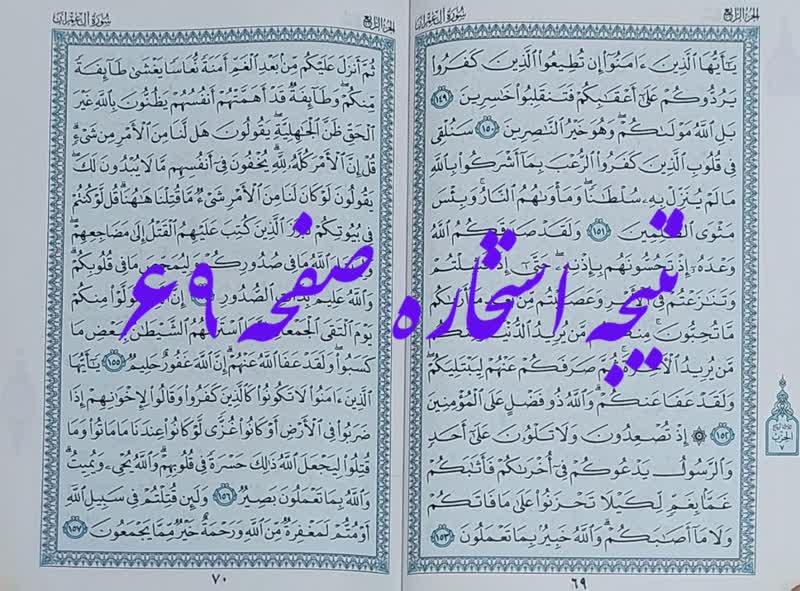 سُورَةُ آلِ عِمْرَان
الجزء الرابع
يَٰٓأَيُّهَا ٱلَّذِينَ ءَامَنُوٓا۟ إِن تُطِيعُوا۟ ٱلَّذِينَ كَفَرُوا۟
يَرُدُّوكُمْ عَلَىٰٓ أَعْقَٰبِكُمْ فَتَنقَلِبُوا۟ خَٰسِرِينَ ١٤٩
بَلِ ٱللَّهُ مَوْلَىٰكُمْ وَهُوَ خَيْرُ ٱلنَّٰصِرِينَ ١٥٠ سَنُلْقِى
فِى قُلُوبِ ٱلَّذِينَ كَفَرُوا۟ ٱلرُّعْبَ بِمَآ أَشْرَكُوا۟ بِٱللَّهِ
مَا لَمْ يُنَزِّلْ بِهِۦ سُلْطَٰنًا وَمَأْوَىٰهُمُ ٱلنَّارُ وَبِئْسَ
مَثْوَى ٱلظَّٰلِمِينَ ١٥١ وَلَقَدْ صَدَقَكُمُ ٱللَّهُ
وَعْدَهُۥٓ إِذْ تَحُسُّونَهُم بِإِذْنِهِۦ حَتَّىٰٓ إِذَا فَشِلْتُمْ
وَتَنَٰزَعْتُمْ فِى ٱلْأَمْرِ وَعَصَيْتُم مِّنۢ بَعْدِ مَآ أَرَىٰكُم
مَّا تُحِبُّونَ مِنكُم مَّن يُرِيدُ ٱلدُّنْيَا وَمِنكُم
مَّن يُرِيدُ ٱلْءَاخِرَةَ ثُمَّ صَرَفَكُمْ عَنْهُمْ لِيَبْتَلِيَكُمْ
وَلَقَدْ عَفَا عَنكُمْ وَٱللَّهُ ذُو فَضْلٍ عَلَى ٱلْمُؤْمِنِينَ
١٥٢ ۞ إِذْ تُصْعِدُونَ وَلَا تَلْوُۥنَ عَلَىٰٓ أَحَدٍ
وَٱلرَّسُولُ يَدْعُوكُمْ فِىٓ أُخْرَىٰكُمْ فَأَثَٰبَكُمْ
غَمًّۢا بِغَمٍّ لِّكَيْلَا تَحْزَنُوا۟ عَلَىٰ مَا فَاتَكُمْ
وَلَا مَآ أَصَٰبَكُمْ وَٱللَّهُ خَبِيرٌۢ بِمَا تَعْمَلُونَ ١٥٣
٦٩
الحزب
٧
سُورَةُ آلِ عِمْرَان
الجزء الرابع
ثُمَّ أَنزَلَ عَلَيْكُم مِّنۢ بَعْدِ ٱلْغَمِّ أَمَنَةً نُّعَاسًا يَغْشَىٰ طَآئِفَةً
مِّنكُمْ وَطَآئِفَةٌ قَدْ أَهَمَّتْهُمْ أَنفُسُهُمْ يَظُنُّونَ بِٱللَّهِ غَيْرَ
ٱلْحَقِّ ظَنَّ ٱلْجَٰهِلِيَّةِ يَقُولُونَ هَل لَّنَا مِنَ ٱلْأَمْرِ مِن شَىْءٍ
قُلْ إِنَّ ٱلْأَمْرَ كُلَّهُۥ لِلَّهِ يُخْفُونَ فِىٓ أَنفُسِهِم مَّا لَا يُبْدُونَ لَكَ
يَقُولُونَ لَوْ كَانَ لَنَا مِنَ ٱلْأَمْرِ شَىْءٌ مَّا قُتِلْنَا هَٰهُنَا قُل لَّوْ كُنتُمْ
فِى بُيُوتِكُمْ لَبَرَزَ ٱلَّذِينَ كُتِبَ عَلَيْهِمُ ٱلْقَتْلُ إِلَىٰ مَضَاجِعِهِمْ
وَلِيَبْتَلِىَ ٱللَّهُ مَا فِى صُدُورِكُمْ وَلِيُمَحِّصَ مَا فِى قُلُوبِكُمْ
وَٱللَّهُ عَلِيمٌۢ بِذَاتِ ٱلصُّدُورِ إِنَّ ٱلَّذِينَ تَوَلَّوْا۟ مِنكُمْ
يَوْمَ ٱلْتَقَى ٱلْجَمْعَانِ إِنَّمَا ٱسْتَزَلَّهُمُ ٱلشَّيْطَٰنُ بِبَعْضِ مَا
كَسَبُوا۟ وَلَقَدْ عَفَا ٱللَّهُ عَنْهُمْ إِنَّ ٱللَّهَ غَفُورٌ حَلِيمٌ ١٥٥ يَٰٓأَيُّهَا
ٱلَّذِينَ ءَامَنُوا۟ لَا تَكُونُوا۟ كَٱلَّذِينَ كَفَرُوا۟ وَقَالُوا۟ لِإِخْوَٰنِهِمْ إِذَا
ضَرَبُوا۟ فِى ٱلْأَرْضِ أَوْ كَانُوا۟ غُزًّى لَّوْ كَانُوا۟ عِندَنَا مَا مَاتُوا۟ وَمَا
قُتِلُوا۟ لِيَجْعَلَ ٱللَّهُ ذَٰلِكَ حَسْرَةً فِى قُلُوبِهِمْ وَٱللَّهُ يُحْىِۦ وَيُمِيتُ
وَٱللَّهُ بِمَا تَعْمَلُونَ بَصِيرٌ ١٥٦ وَلَئِن قُتِلْتُمْ فِى سَبِيلِ ٱللَّهِ
أَوْ مُتُّمْ لَمَغْفِرَةٌ مِّنَ ٱللَّهِ وَرَحْمَةٌ خَيْرٌ مِّمَّا يَجْمَعُونَ ١٥٧
٧٠
نتیجه استخاره صفحه ۶۹